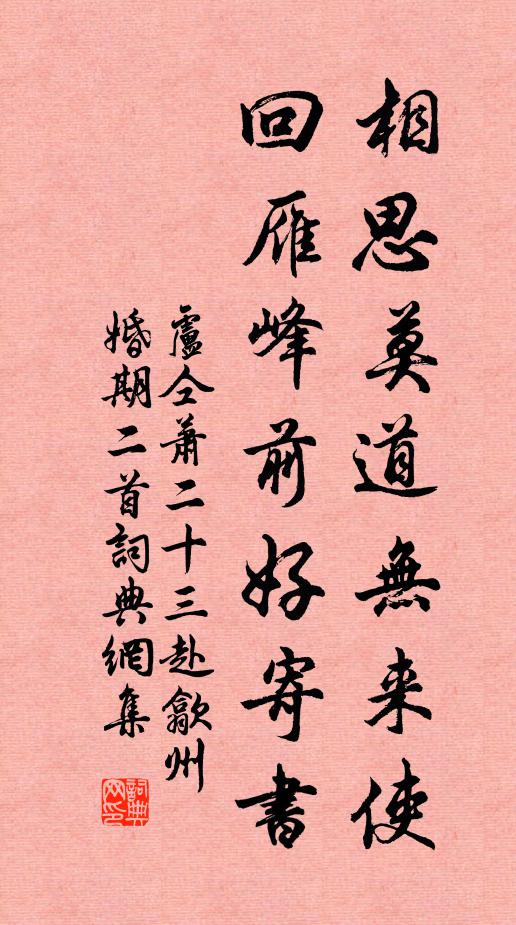 相思莫道無来使
回雁峰前好寄書
盧仝蕭二十三赴歙州
婚期二首詞典網集
詞典网印